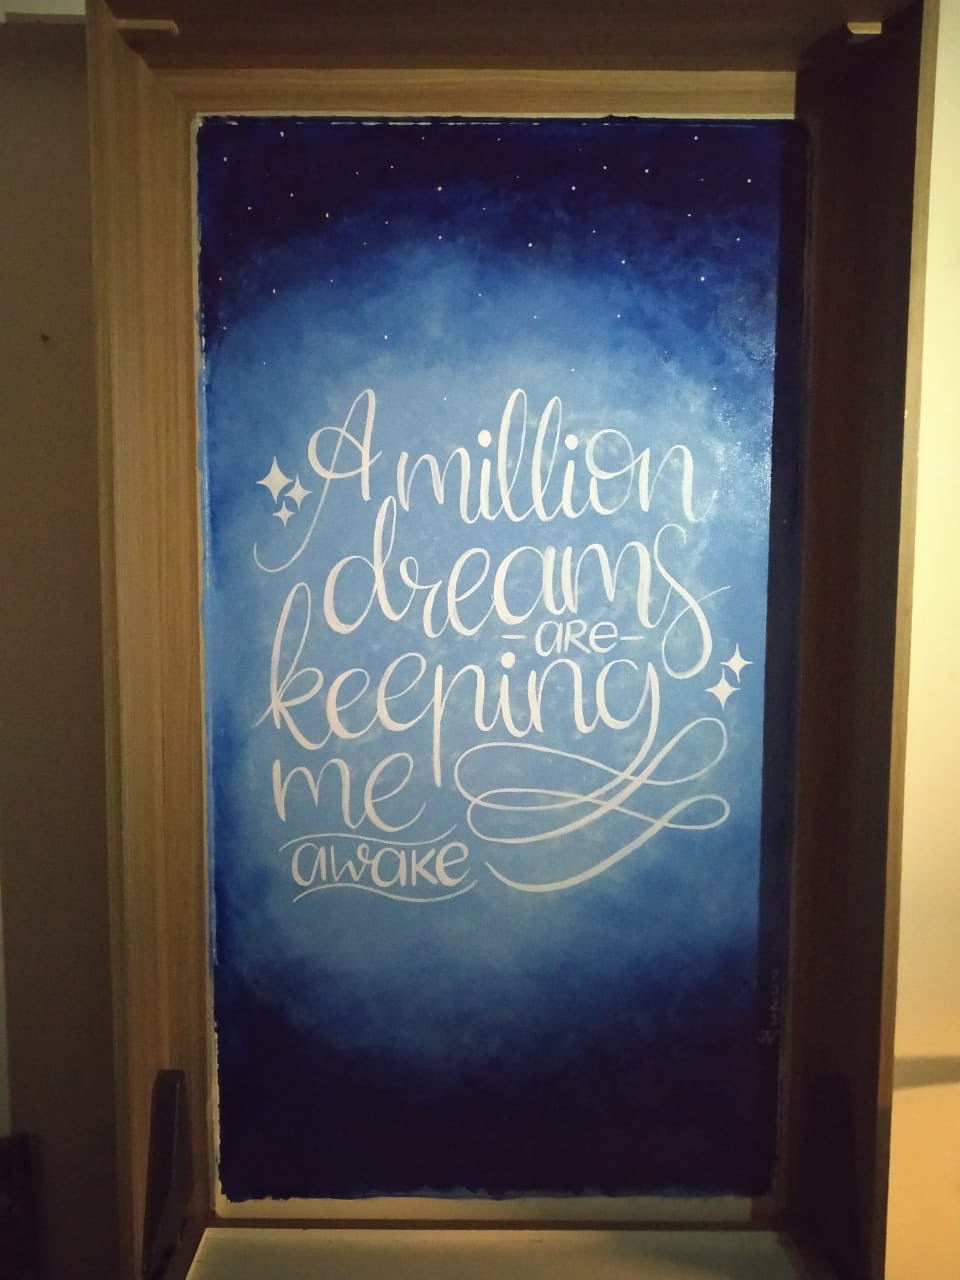 A million
dreams
-are-
keeping
me
awake